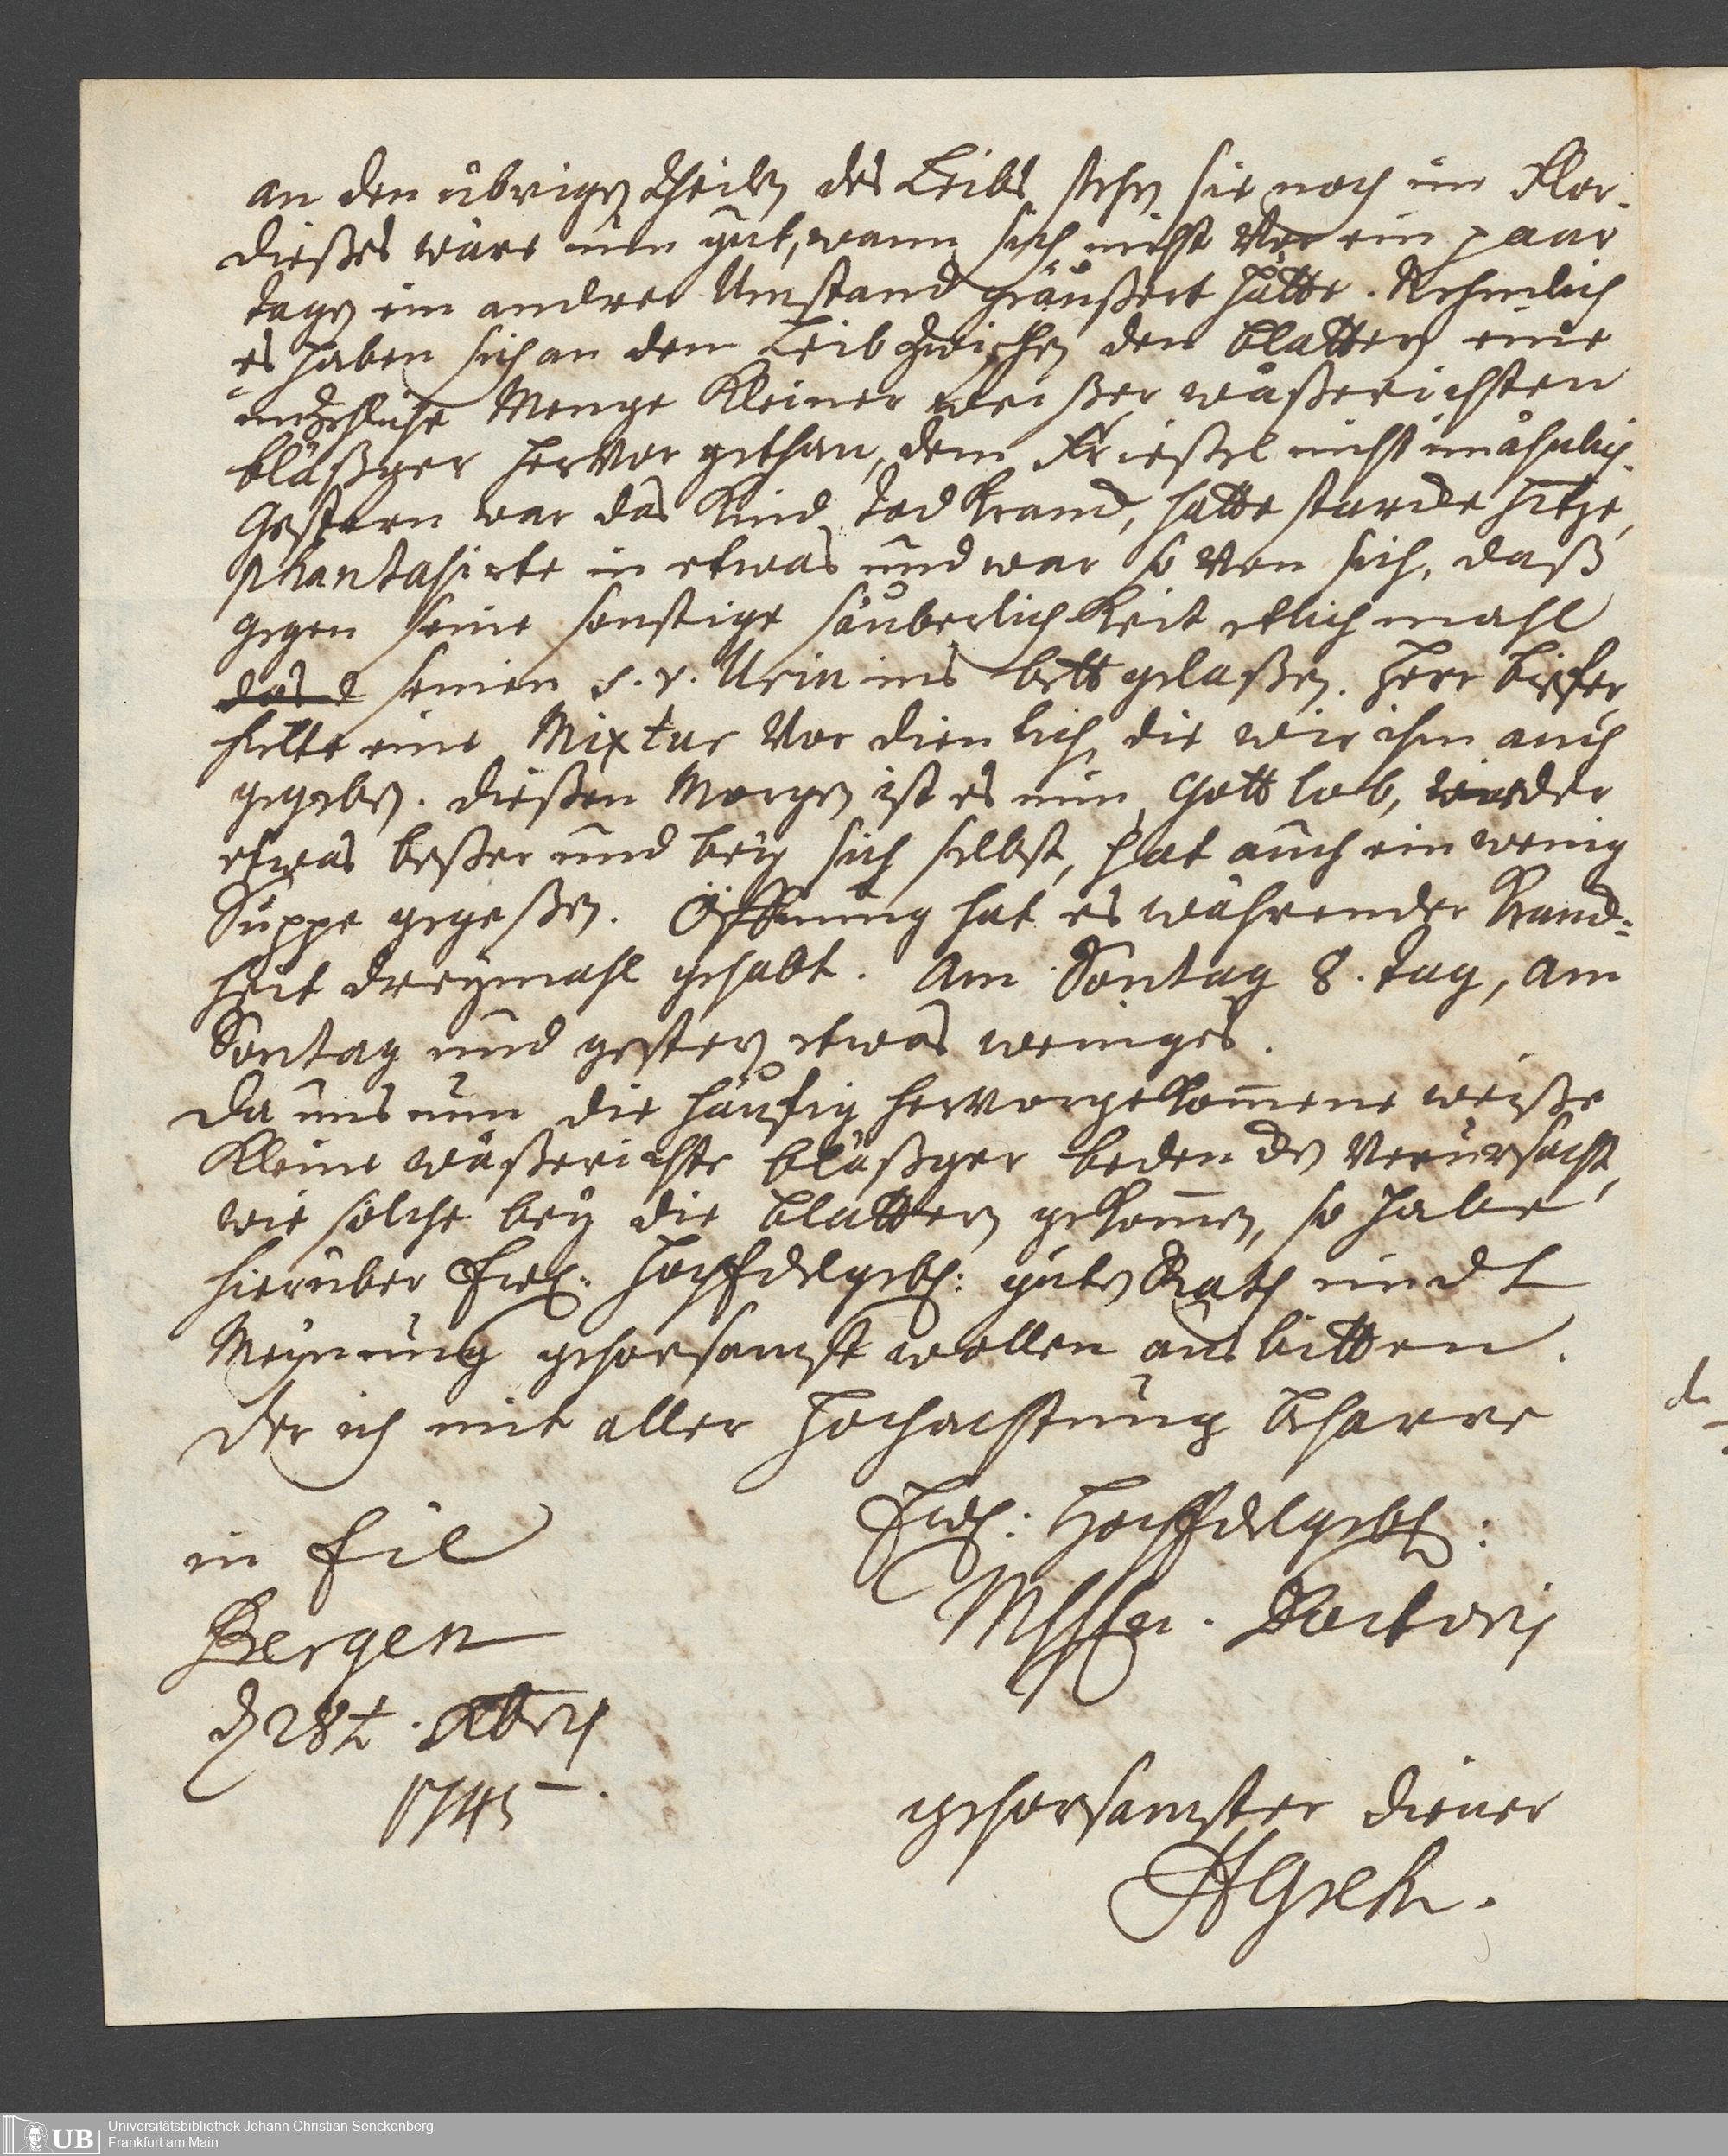 an den übrigen theilen des Leibs stehen sie noch im Flor.
dießes wäre nun gut, wann sich nicht vor ein paar
tagen ein andrer Umstand geäußert hätte. Nehmlich
es haben sich an dem Leib zwischen den blattern eine
unzehliche Menge kleiner weißer wäßerichsten
bläßger hervor gethan, dem Frießel nicht unähnlich.
Gestern war das Kind todkranck, hatte starcke hitze,
phantasirte in etwas und war so von sich, daß
gegen seine sonstige säuberlichkeit etlich mahl
seinen s. v. Urin ins bett gelaßen. Herr
hielte eine Mixtur vor dienlich, die wir ihm auch
gegeben. dießen Morgen ist es nun, Gott lob, wieder
etwas beßer und bey sich selbst, hat auch ein wenig
Suppe gegeßen. Öffnung hat es währender Kranck-
heit dreymahl gehabt. Am Sontag 8. tag, am
Sontag und gestern etwas weniges.
Da uns nun die häufig hervorgekom̅ene weiße
kleine wäßerichte bläßger bedencken verursacht,
wie solche bey die blattern gekom̅en, so habe
hierüber Ew: HochEdelgeb: guten Rath und
Meynung gehorsamst wollen ausbitten.
Der ich mit aller Hochachtung beharre
in Eil
Bergen
d 28t. Xbris
1745.
Ew: HochEdelgeb:
Doctoris
gehorsamster diener
de
Universitätsbibliothek Johann Christian Senckenberg
UB Frankfurt am Main